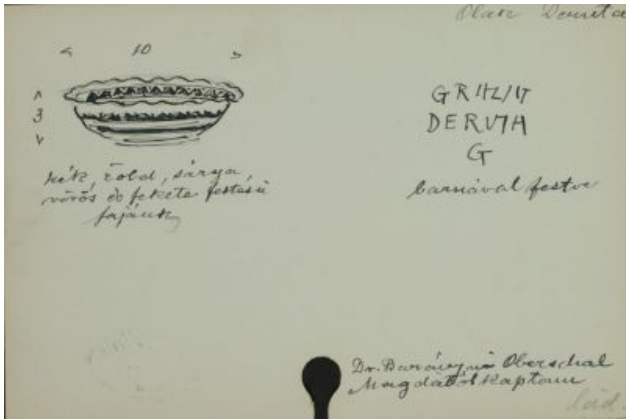 Olasz Deruta
< 10 >
< 3 >
kék, zöld, sárga,
vörös és fekete festésű
fajánsz
DERUTA
G
barnával festve
Dr. Barányné Oberschal
Magdától kaptam